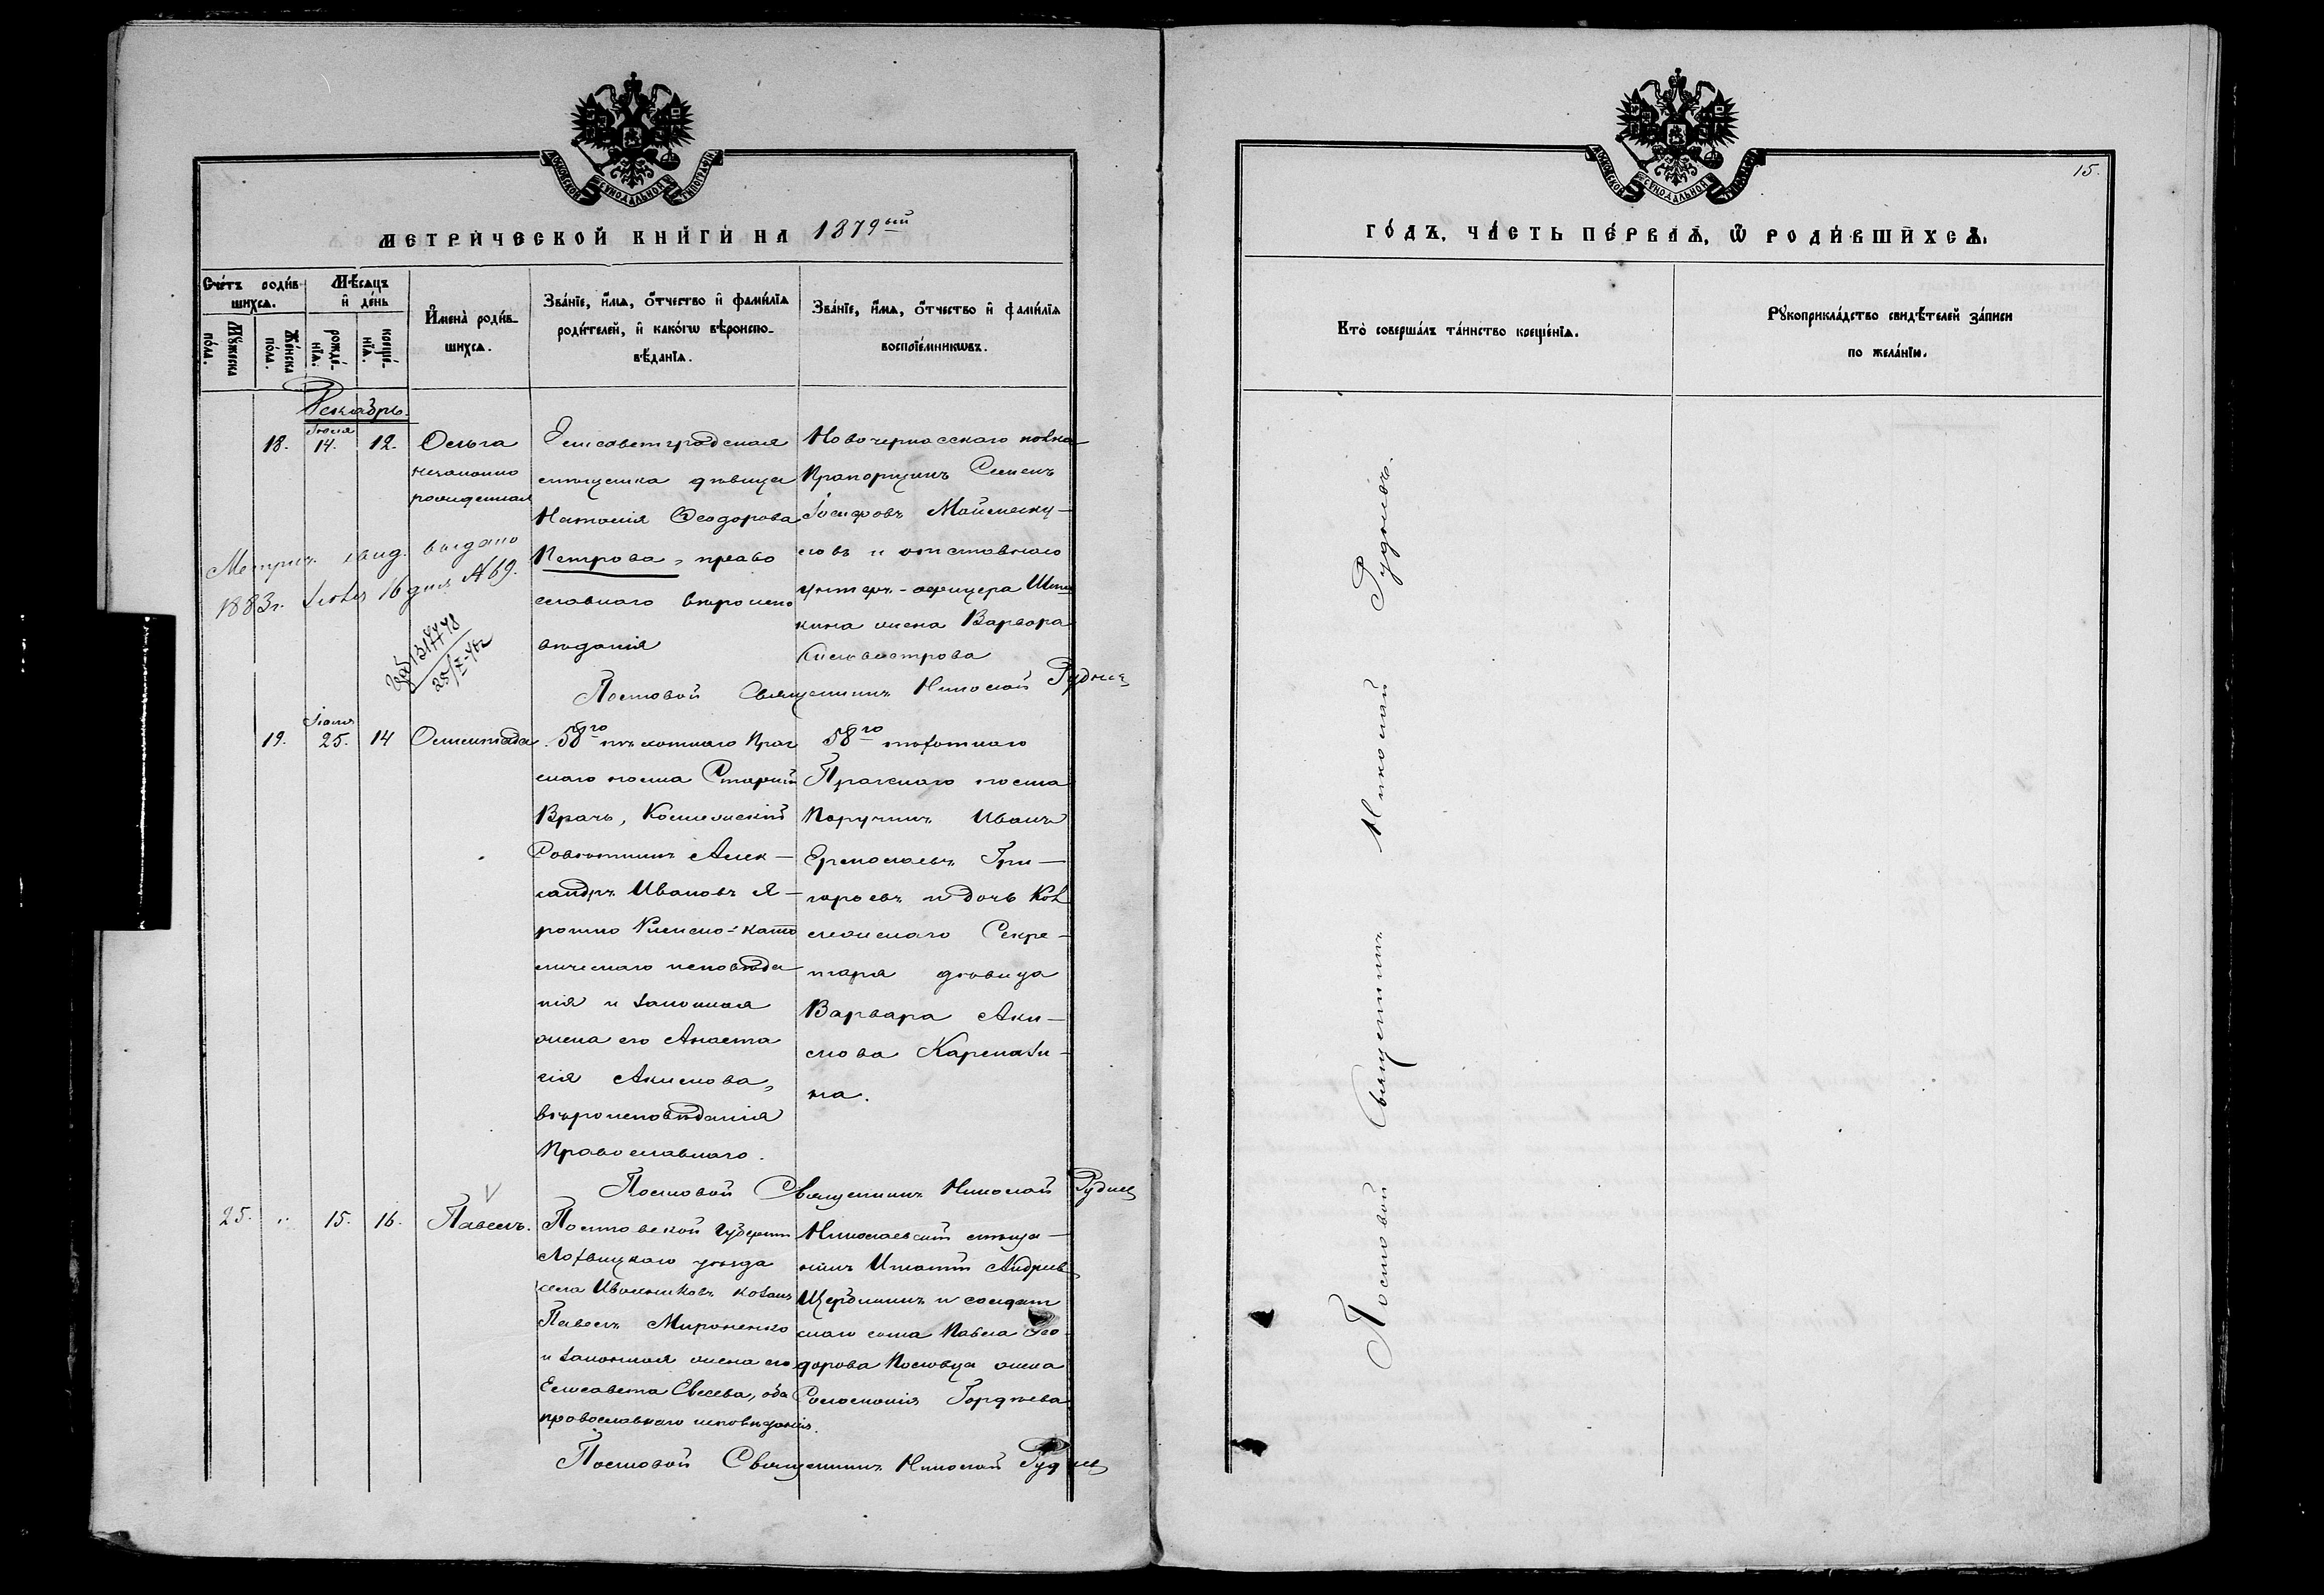 МОСКОВСКОЙ СѴНОДАЛЬНОЙ ТИПОГРАФІИ
МЕТРИЧЕСКОЙ КНИГИ НА 1879ый
Счетъ родив-
шихся.
Мужеска
пола.
Женска
пола.
Мѣсяцъ
и день
рожде-
нія.
креще-
нія.
Имена родив-
шихся.
Званіе, имя, отчество и фамилія
родителей, и какогѡ вѣроиспо-
вѣданія.
Званіе, имя, отчество и фамилія
воспріемникѡвъ.
Декабрь.
18. Іюля 14. 12. Ольга
незаконно
рожденная
Елисаветградская
мѣщанка дѣвица
Наталія Ѳеодорова
Петрова, право
славнаго вѣроиспо
вѣданія
Новочеркасскаго полка
Прапорщикъ Семенъ
Іосифовъ
и отставнаго
унтеръ-офицера
жена Варвара
Метрич. свид. выдано
1883 г. 16 дня № 69.
Полковой Священникъ Николай Рудневъ
19. 25. 14
58го пѣхотнаго Праж
скаго полка Старшій
Врачъ, Коллежскій
Совѣтникъ Алек-
сандръ Ивановъ
Римско-като
лическаго исповѣда
нія и законная
жена его Анаста
сія Акимова,
вѣроисповѣданія
Православнаго.
58го пѣхотнаго
Пражскаго полка
Поручикъ Иванъ
Ермолаевъ Гри-
горьевъ и дочь Кол
лежскаго Секре-
таря дѣвица
Варвара Аки-
мова
на.
Полковой Священникъ Николай Рудневъ
25. " 15. 16. Павелъ.
Полтавской губерніи
Лохвицкаго уѣзда
села козакъ
Павелъ Мироненко
и законная жена его
Елисавета Евсеева, оба
православнаго исповѣданія.
Николаевскій мѣща-
нинъ Игнатій Андреевъ
и солдат
скаго сына Павла Ѳео-
дорова жена
Соломонія Гордѣева
Полковой Священникъ Николай Рудневъ
МОСКОВСКОЙ СѴНОДАЛЬНОЙ ТИПОГРАФІИ
15.
ГОДЪ, ЧАСТЬ ПЕРВАЯ, Ѿ РОДИВШИХСЯ.
Кто совершалъ таинство крещенія.
Рукоприкладство свидѣтелей записи
по желанію.
Полковой Священникъ Николай Рудневъ.